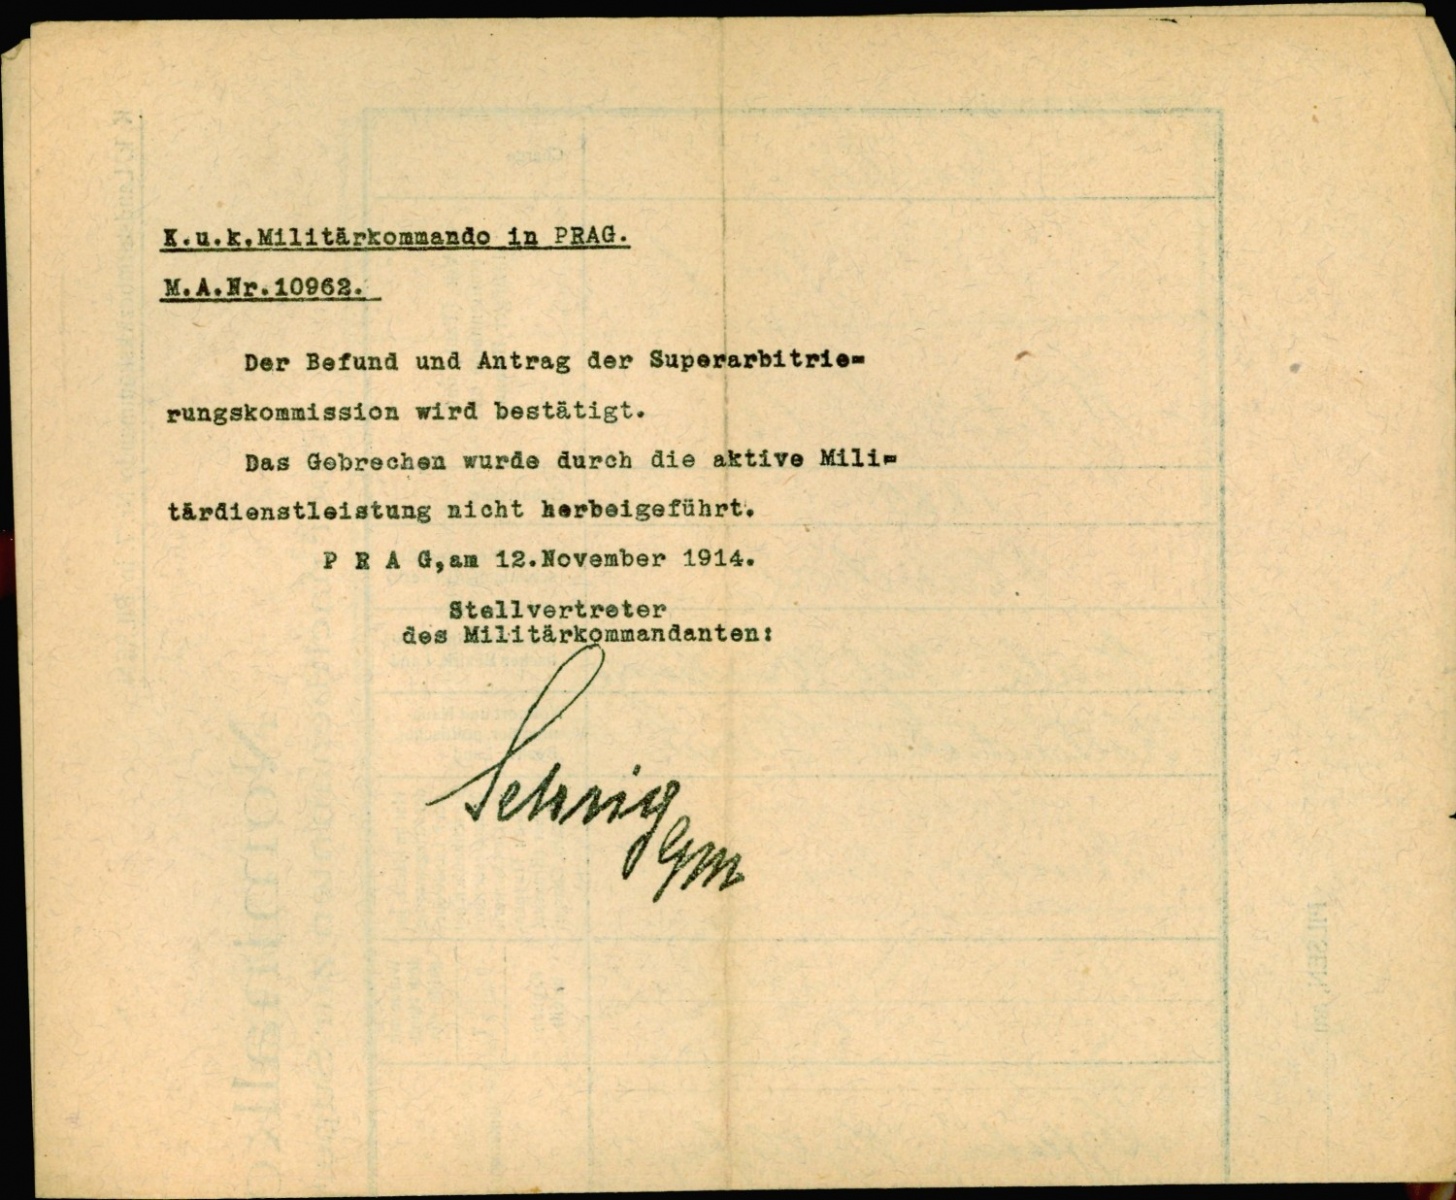 K.u.k.Militärkommando in PRAG.
M.A.Nr.10962.
Der Befund und Antrag der Superarbitrie=
rungskommission wird bestätigt.
Das Gebrechen wurde durch die aktive Mili=
tärdienstleistung nicht herbeigeführt.
P R A G,am 12.November 1914.
Stellvertreter
des Militärkommandanten:
GM
PILSEN, am